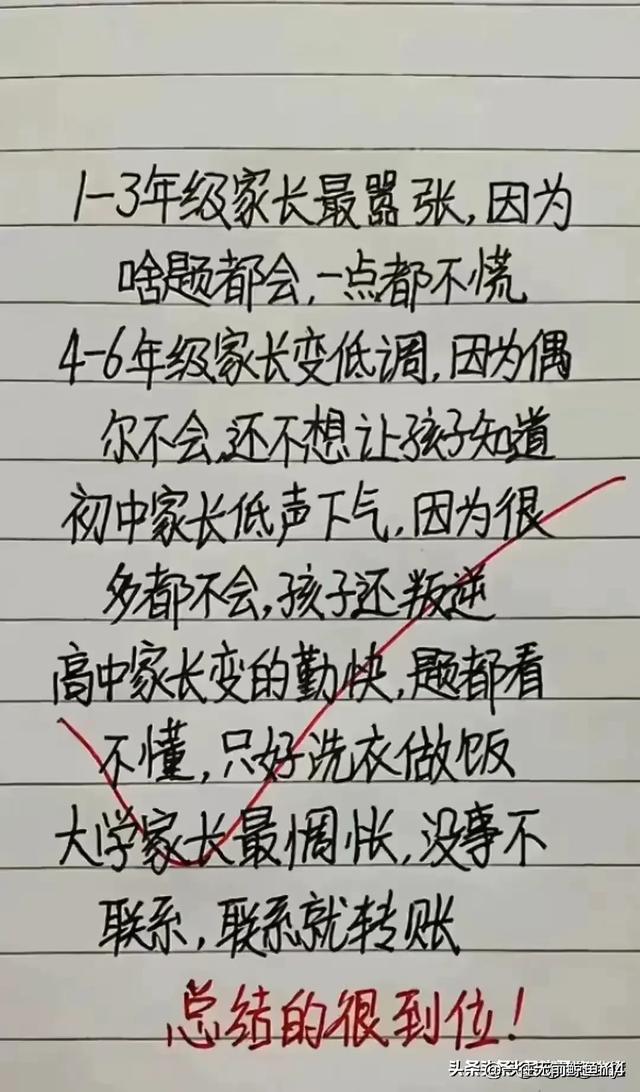 1-3年级家长最嚣张,因为
啥题都会,一点都不慌
4-6年级家长变低调,因为偶
尔不会,还不想让孩子知道
初中家长低声下气,因为很
多都不会,孩子还叛逆
高中家长变的勤快,题都看
不懂,只好洗衣做饭
大学家长最惆怅,没事不
联系,联系就转账
总结的很到位!